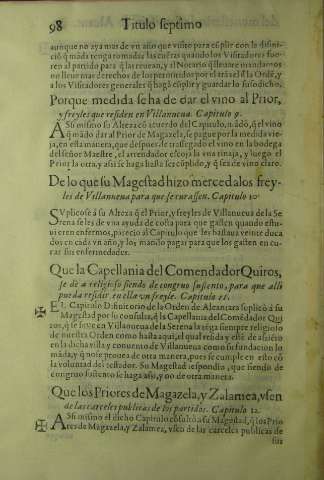 98 Titulo septimo
aunque no aya mas de vn año que visito para cũplir con la difinició
q̃ mãda tenga tomadas las cuētas quando los Visitadores fuerē
al partido para q̃ las reuean, y al Notario q̃ lleuare mandamos
no lleue mas derechos de los permitidos por el arãzel d̃ la Ordē, y
a los Visitadores generales q̃ hagã cũplir y guardar lo susodicho.
Porque medida se ha de dar el vino al Prior,
y freyles que residen en Villanueua. Capitulo 9.
ASsi mismo su Alteza cõ acuerdo del Capitulo, mãdò, q̃ el vino
q̃ mãdò dar al Prior de Magazela, se pague por la medida vieja,
en esta manera, que despues de trasegado el vino en la bodega
del señor Maestre, el arrendador escoja la vna tinaja, y luego el
Prior la otra, y assi se haga hasta ser cũplido, y q̃ sea de vino claro.
De lo que su Magestad hizo merced a los frey-
les de Villanueua para que se curassen. Capitulo 10
SVplicose à su Alteza q̃ el Prior, y freyles de Villanueua de la Serena
se les de vna ayuda de costa para que gasten quando estuuieren
enfermos, parecio al Capitulo que les bastaua veinte ducados
en cada vn año, y los mandò pagar para que los gasten en curar
sus enfermedades.
Que la Capellania del Comendador Quiros,
se dè a religioso siendo de congruo sustento, para que alli
pueda residir en ella vn freyle. Capitulo 11.
EL Capitulo Difinitorio de la Orden de Alcantara suplicò à su
Magestad por su consulta, q̃ la Capellania del Comēdador Quiros,
q̃ se sirue en Villanueua de la Serena la tēga siempre religioso
de nuestra Orden como hasta aqui, el qual resida y estè de assiēto
en la dicha villa y conuento de Villanueua como su fundacion lo
mãda, y q̃ no se prouea de otra manera, pues se cumple en esto cõ
la voluntad del testador. Su Magestad respondio, que siendo de
congruo sustento se haga assi, y no de otra manera.
Que los Priores de Magazela, y Zalamea, vsen
de las carceles publicas de los partidos. Capitulo 12.
ASsi mismo el dicho Capitulo cõsultò a su Magestad, q̃ los Priores
de Magazela, y Zalamea, vsen de las carceles publicas de
sus